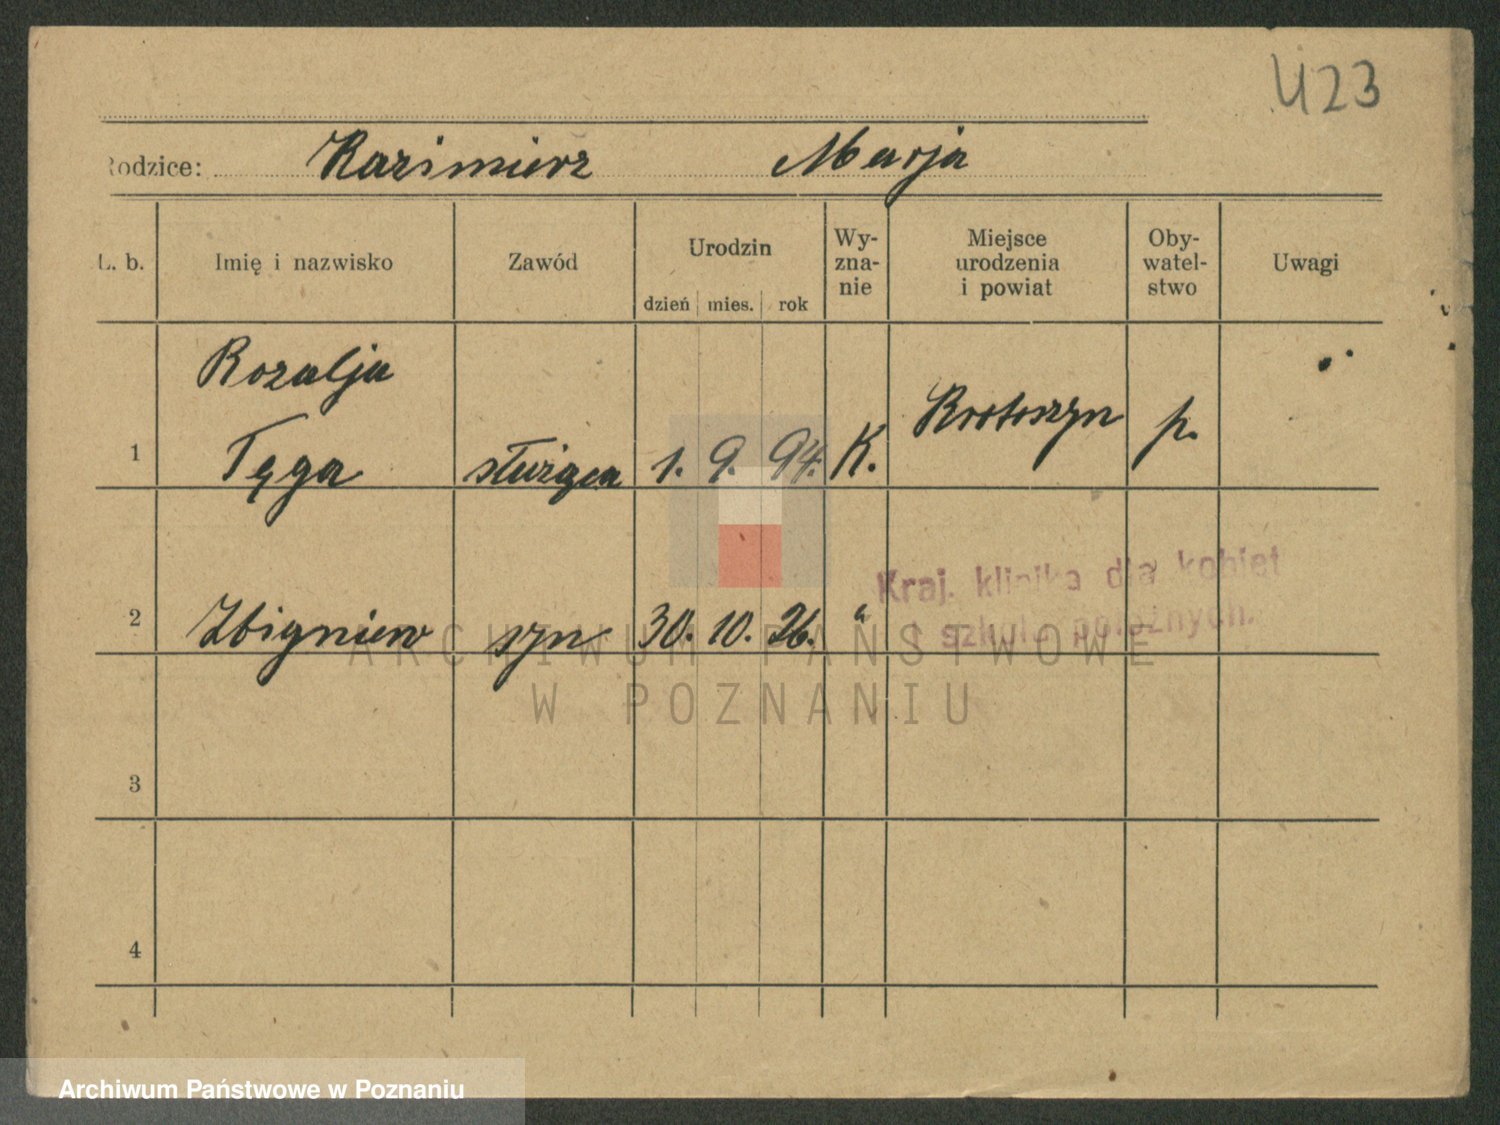 423
Rodzice: Kazimierz Marja
L. b. Imię i nazwisko Zawód Urodzin dzień mies. rok Wy-zna-nie Miejsce urodzenia i powiat Oby-watel-stwo Uwagi
Rozalja
1 Tęga służąca 1. 9. 94. K. Krotoszyn p.
Kraj. klinika dla kobiet
i szkoła położnych.
2 Zbigniew syn 30. 10. 26. "
ARCHIWUM PAŃSTWOWE
W POZNANIU
3
4
Archiwum Państwowe w Poznaniu